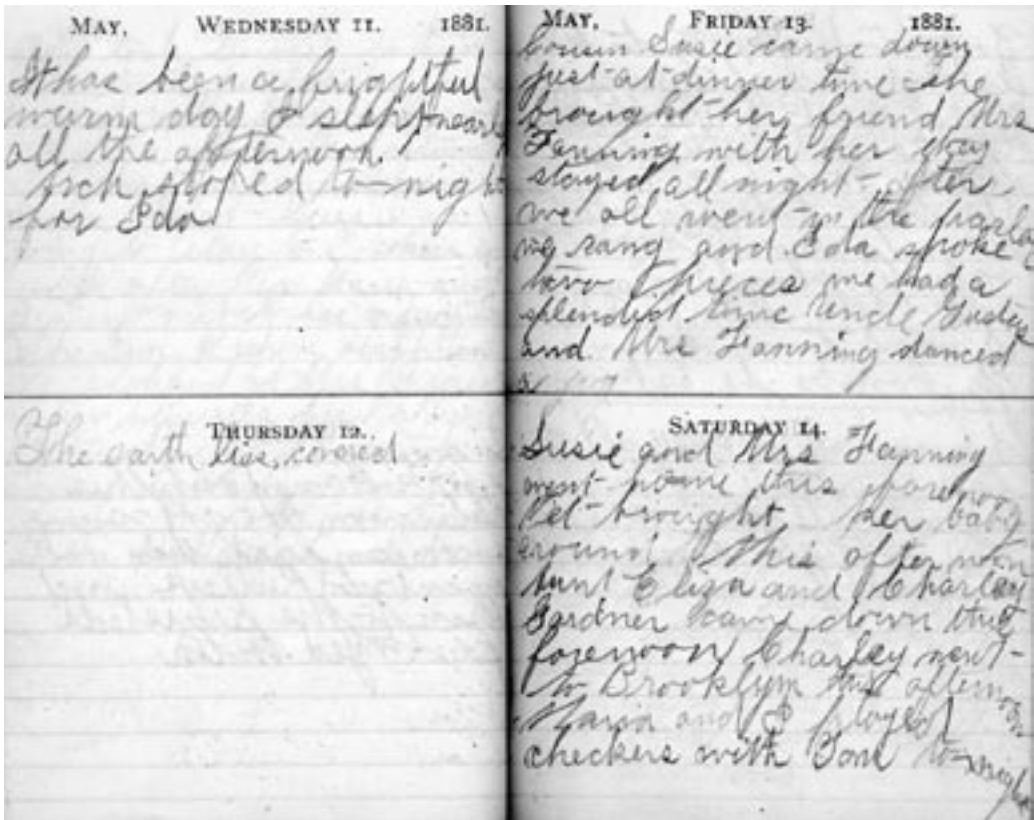 MAY, WEDNESDAY 11. 1881.
It has been a frightful
warm day I slept nearly
all the afternoon.
stoped to-night
for Ida
THURSDAY 12.
The earth lies, covered
MAY, FRIDAY 13. 1881.
Cousin Susie came down
just at dinner time she
brought her friend Mrs
Fanning with her they
stayed all night- after
we all went in the parlor
we sang and Eda spoke
two pieces we had a
splendid time Uncle
and Mrs Fanning danced
a jig
SATURDAY 14.
Susie and Mrs Fanning
went home this forenoon
brought her baby
around this after noon
Aunt Eliza and Charley
Gardner came down this
forenoon Charley went-
to Brooklyn this afternoon
Maria and I played
checkers with Tom to-night